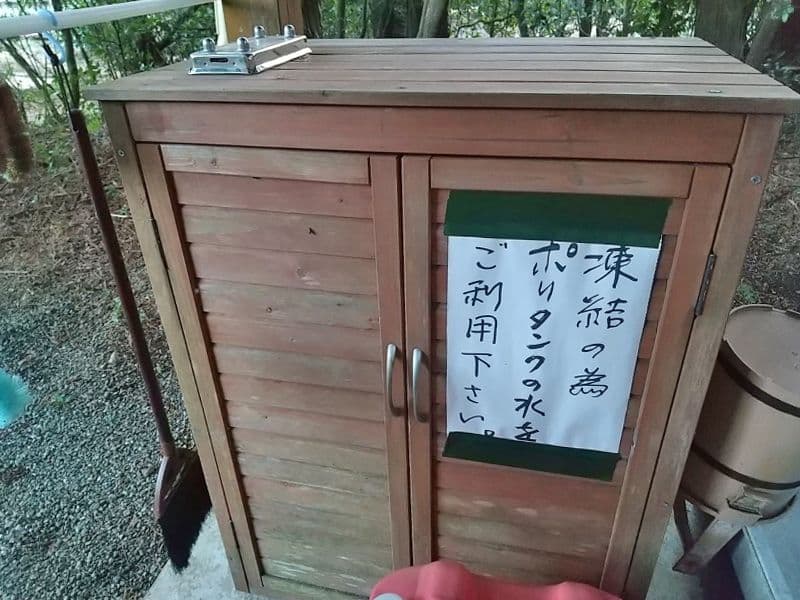 凍結の為
ポリタンクの水を
ご利用下さい。